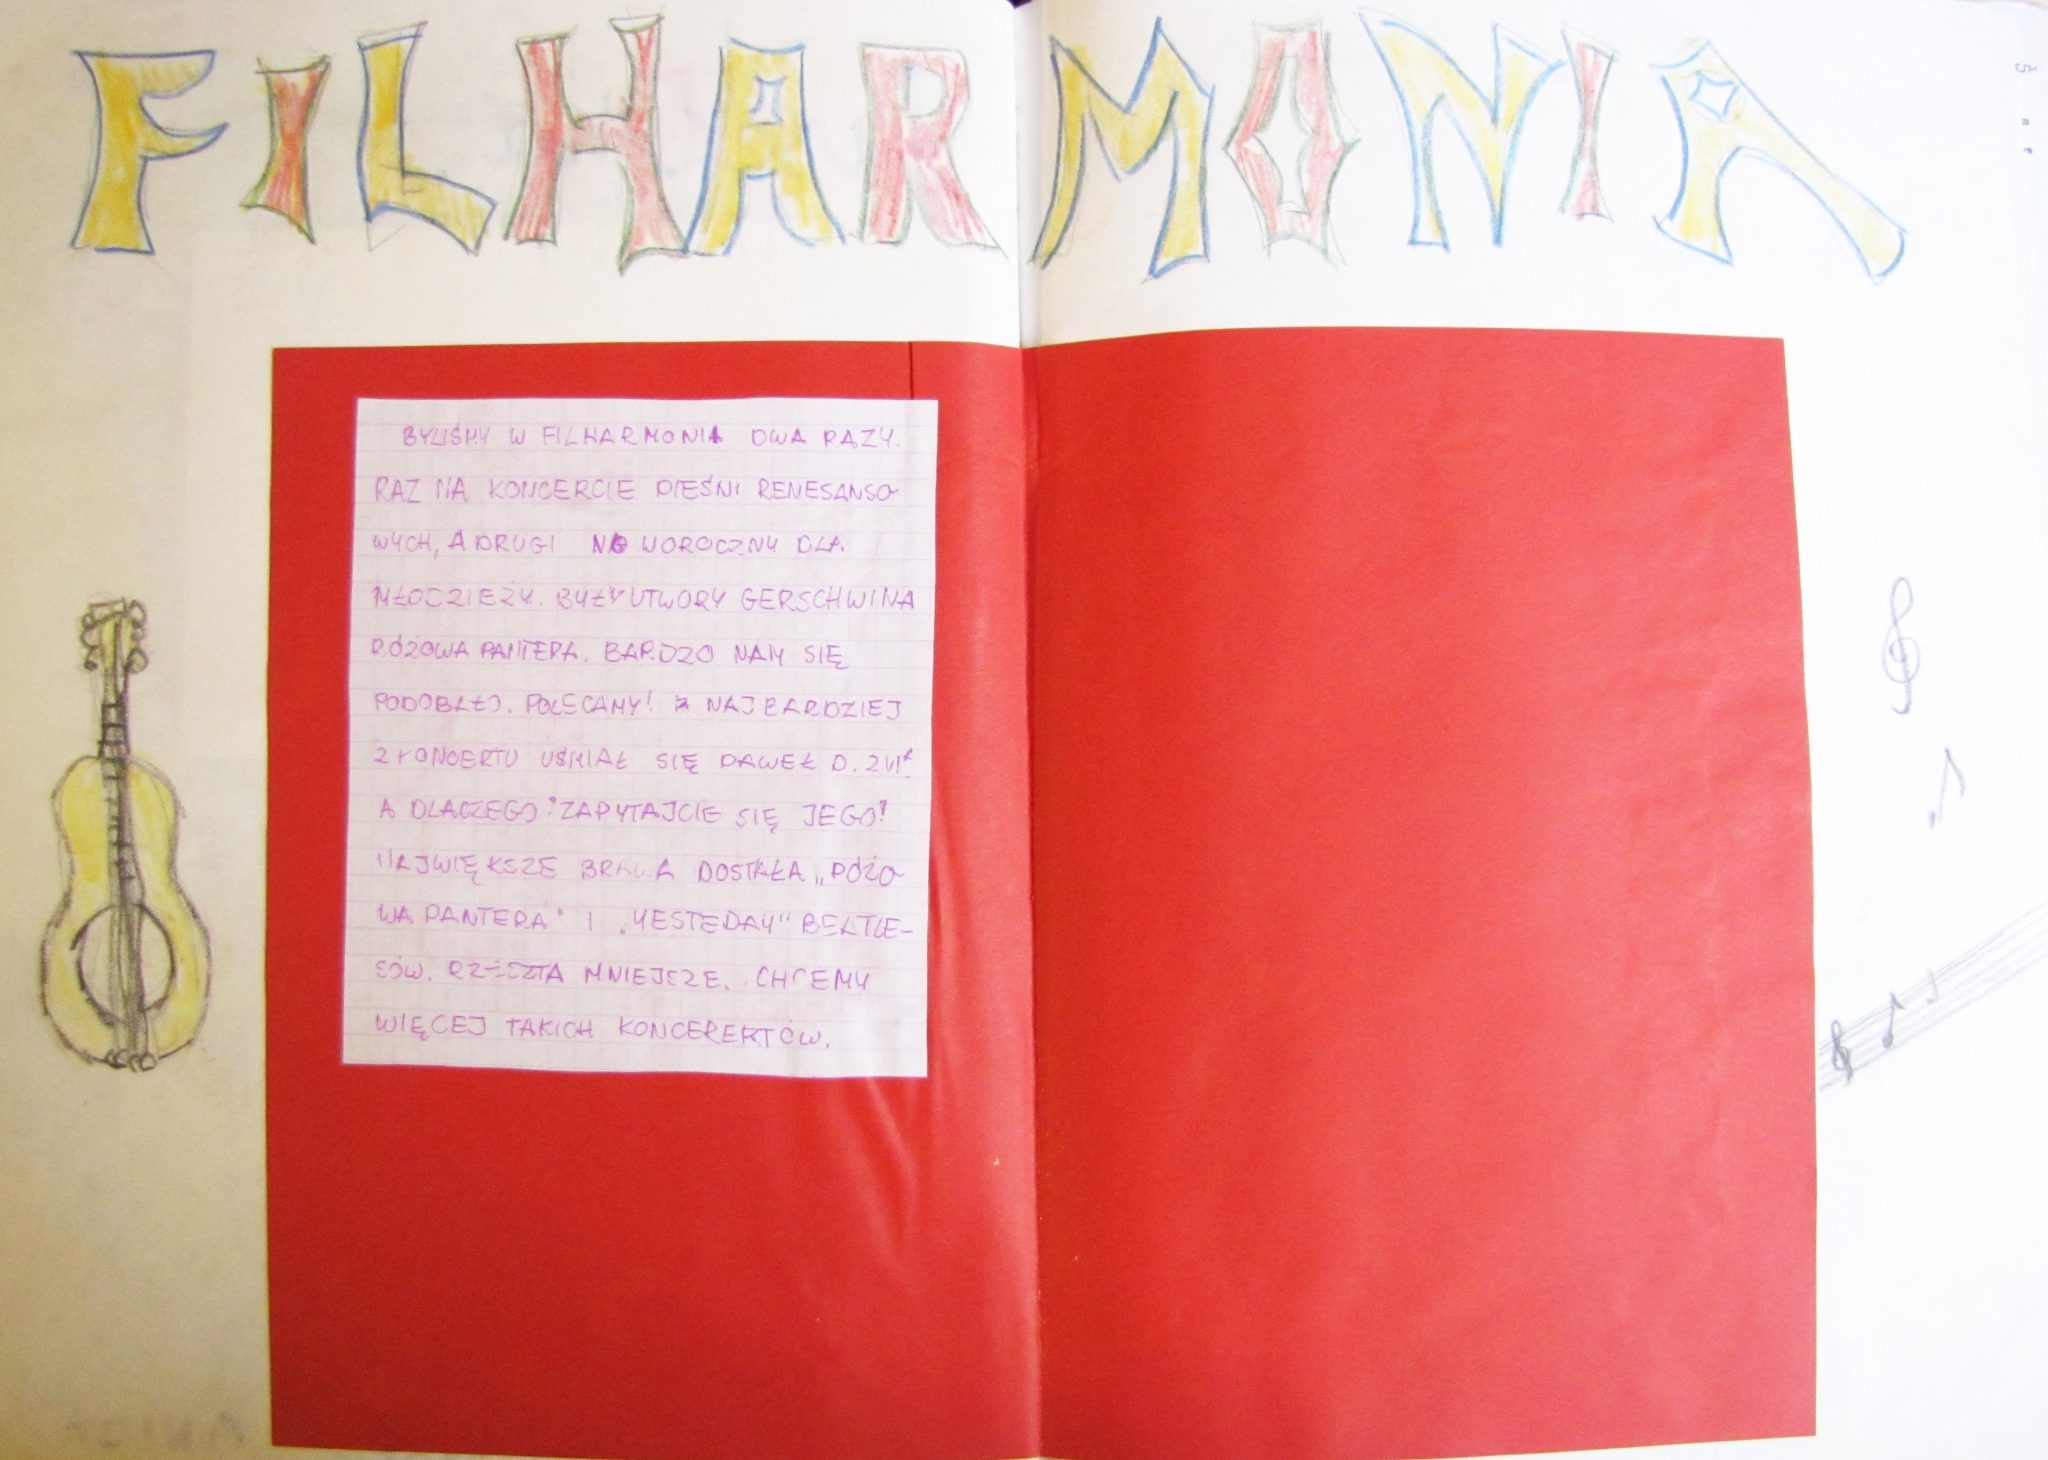 FILHARMONIA
BYLIŚMY W FILHARMONIA DWA RAZY.
RAZ NA KONCERCIE PIEŚNI RENESANSO
WYCH, A DRUGI NOWOROCZNY DLA
MŁODZIEŻY. BYŁY UTWORY GERSCHWINA
RÓŻOWA PANTERA. BARDZO NAM SIĘ
PODOBAŁO. POLECAMY! NAJBARDZIEJ
Z KONCERTU UŚMIAŁ SIĘ PAWEŁ D. Z VI
A DLACZEGO? ZAPYTAJCIE SIĘ JEGO!
NAJWIĘKSZE BRAWA DOSTAŁA „RÓŻO
WA PANTERA" I „YESTEDAY" BEATLE-
SÓW. RZESZTA MNIEJSZE. CHCEMY
WIĘCEJ TAKICH KONCERERTÓW.